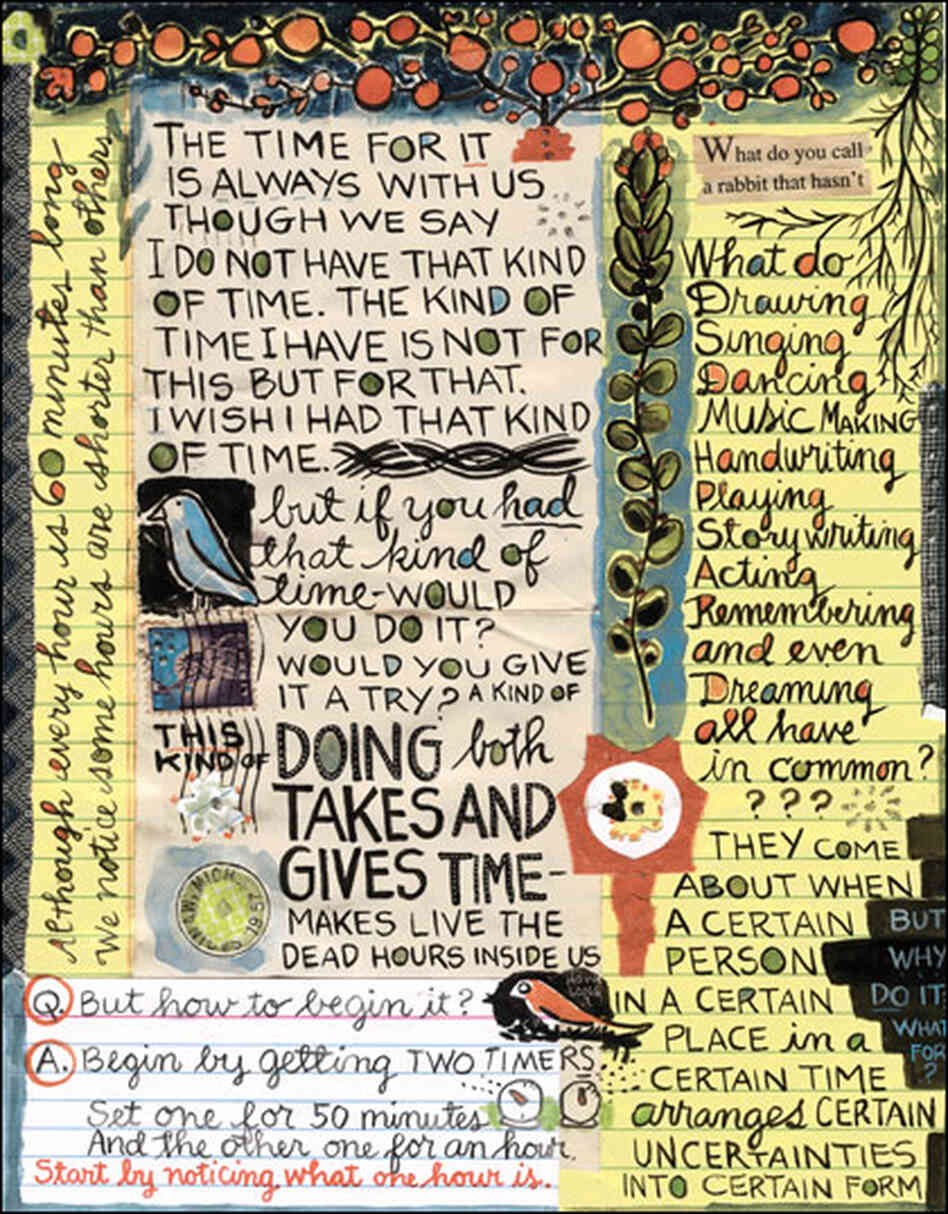 Although every hour is 60 minutes long
We notice some hours are shorter than others
THE TIME FOR IT
IS ALWAYS WITH US
THOUGH WE SAY
I DO NOT HAVE THAT KIND
OF TIME. THE KIND OF
TIME I HAVE IS NOT FOR
THIS BUT FOR THAT.
I WISH I HAD THAT KIND
OF TIME.
but if you had
that kind of
time-WOULD
YOU DO IT?
WOULD YOU GIVE
IT A TRY? A KIND OF
THIS
KIND OF
DOING both
TAKES AND
GIVES TIME-
MAKES LIVE THE
DEAD HOURS INSIDE US
Q. But how to begin it?
A. Begin by getting TWO TIMERS
Set one for 50 minutes
And the other one for an hour.
Start by noticing what one hour is.
What do you call
a rabbit that hasn't
What do
Drawing
Singing
Dancing
MUSIC MAKING
Handwriting
Playing
Story writing
Acting
Remembering
and even
Dreaming
all have
in common?
? ? ?
THEY COME
ABOUT WHEN
A CERTAIN
PERSON
IN A CERTAIN
PLACE in a
CERTAIN TIME
arranges CERTAIN
UNCERTAINTIES
INTO CERTAIN FORM
BUT
WHY
DO IT
WHAT
FOR
?